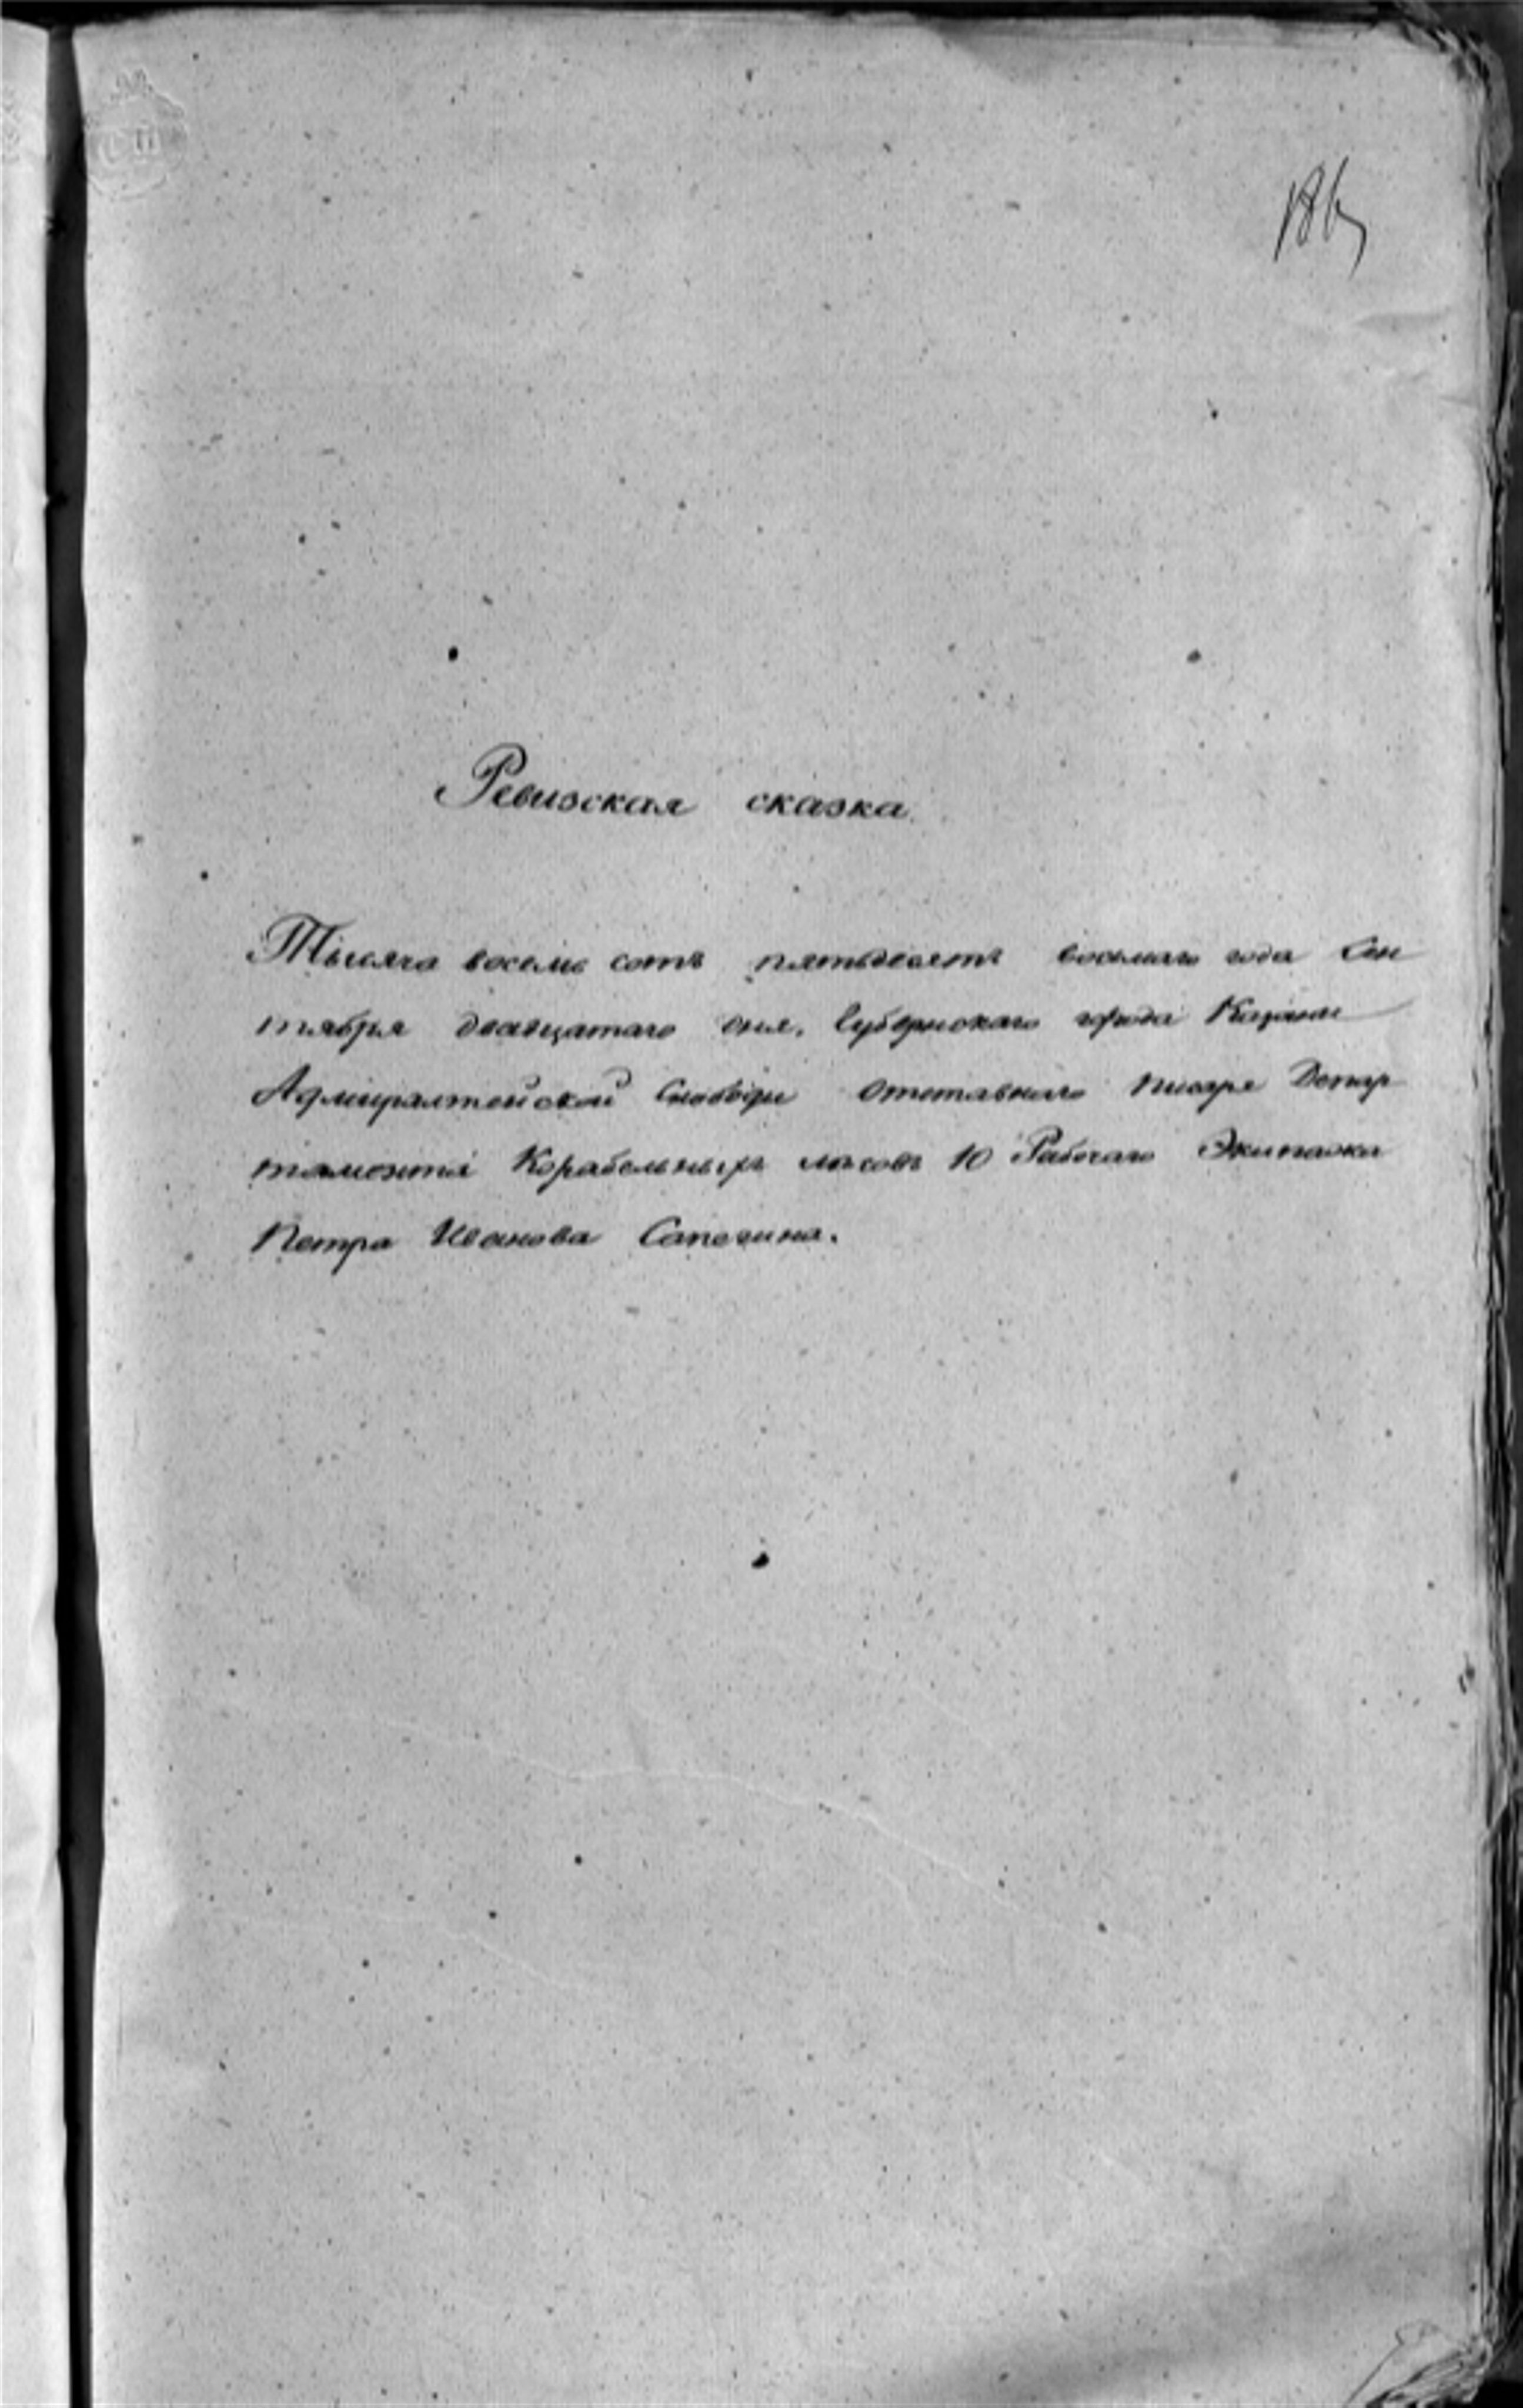 Ревизская сказка
Тысяча восемь сотъ пятьдесятъ восьмаго года Сен
тября двадцатаго дня, Губернскаго города Казани
Адмиралтейской Слободы отставнаго писаря Депар
тамента Корабельныхъ лѣсовъ 10 Рабочаго Экипажа
Петра Иванова Сапегина.